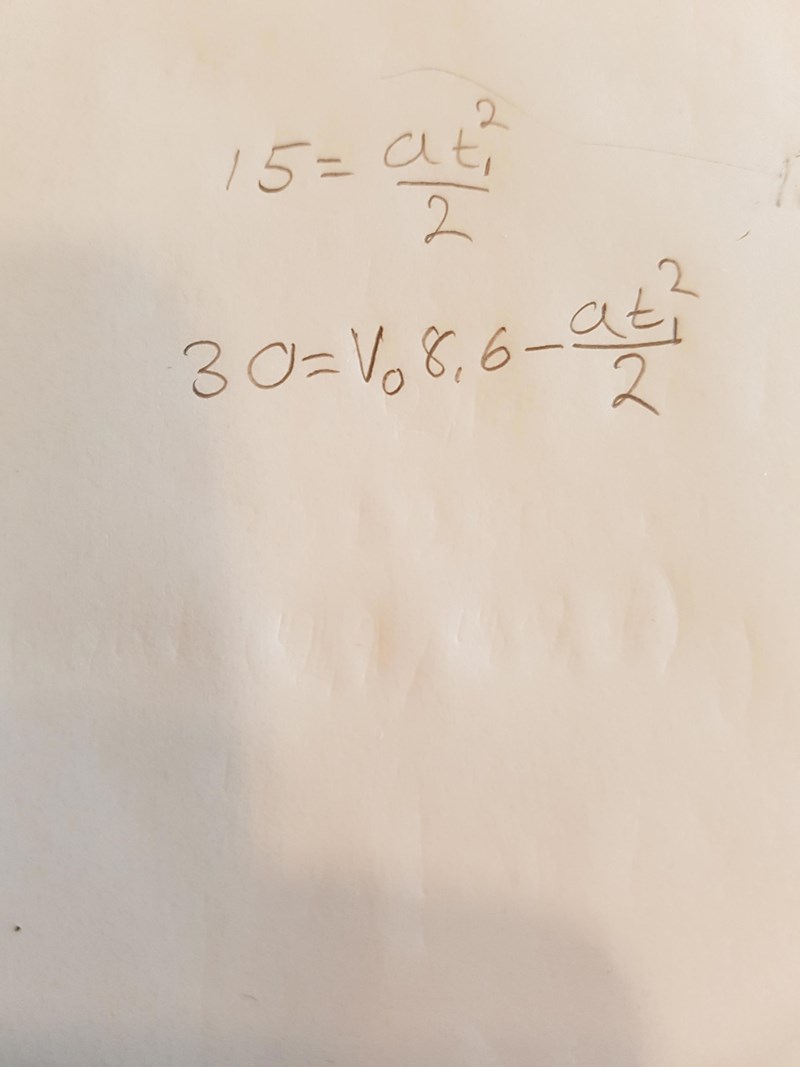 15 = at₁²/2
30 = V₀ 8,6 - at₁²/2